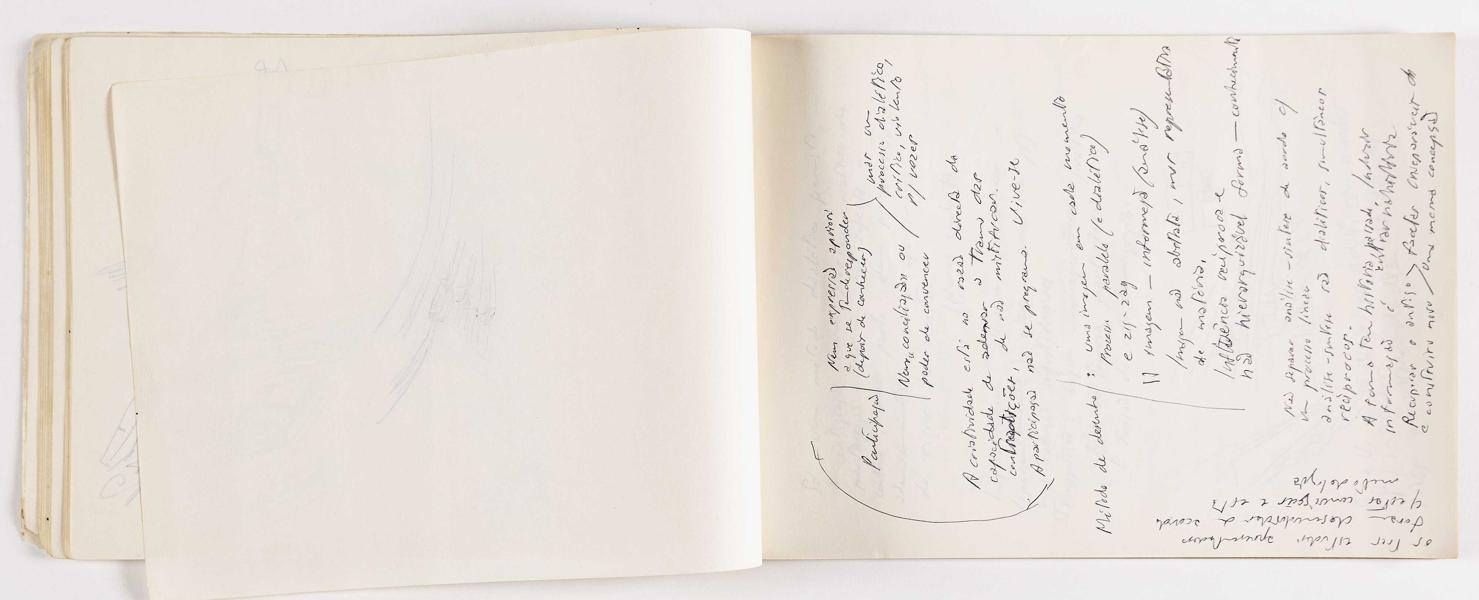 Participação
Nem expressão apriori
a que se tende responder
(depois de conhecer)
Nem conciliação ou
poder de convencer
mas um
processo dialético,
crítico, violento
p/ vezes
A criatividade está na razão directa da
capacidade de ademar a trama das
contradições, de não mitificar.
A participação não se programa. Vive-se
Método de desenho : uma imagem em cada momento
Processo paralelo (e dialético)
e zig-zag
imagem — informação (análise)
Imagem não abstrata, mas representativa
de matéria.
Influência recíproca e
não hierarquizável forma — conhecimento
Não separar análise-síntese de acordo c/
um processo linear
análise-síntese são dialéticas, simultâneas
recíprocas.
A forma tem história passada, futuro
informação é entrar na história
Recuperar o antigo
e construir o novo
Facetas inseparáveis de
uma mesma concepção
os três estudos apresentados
foram desenvolvidos de acordo
c/ estas convicções e esta
metodologia